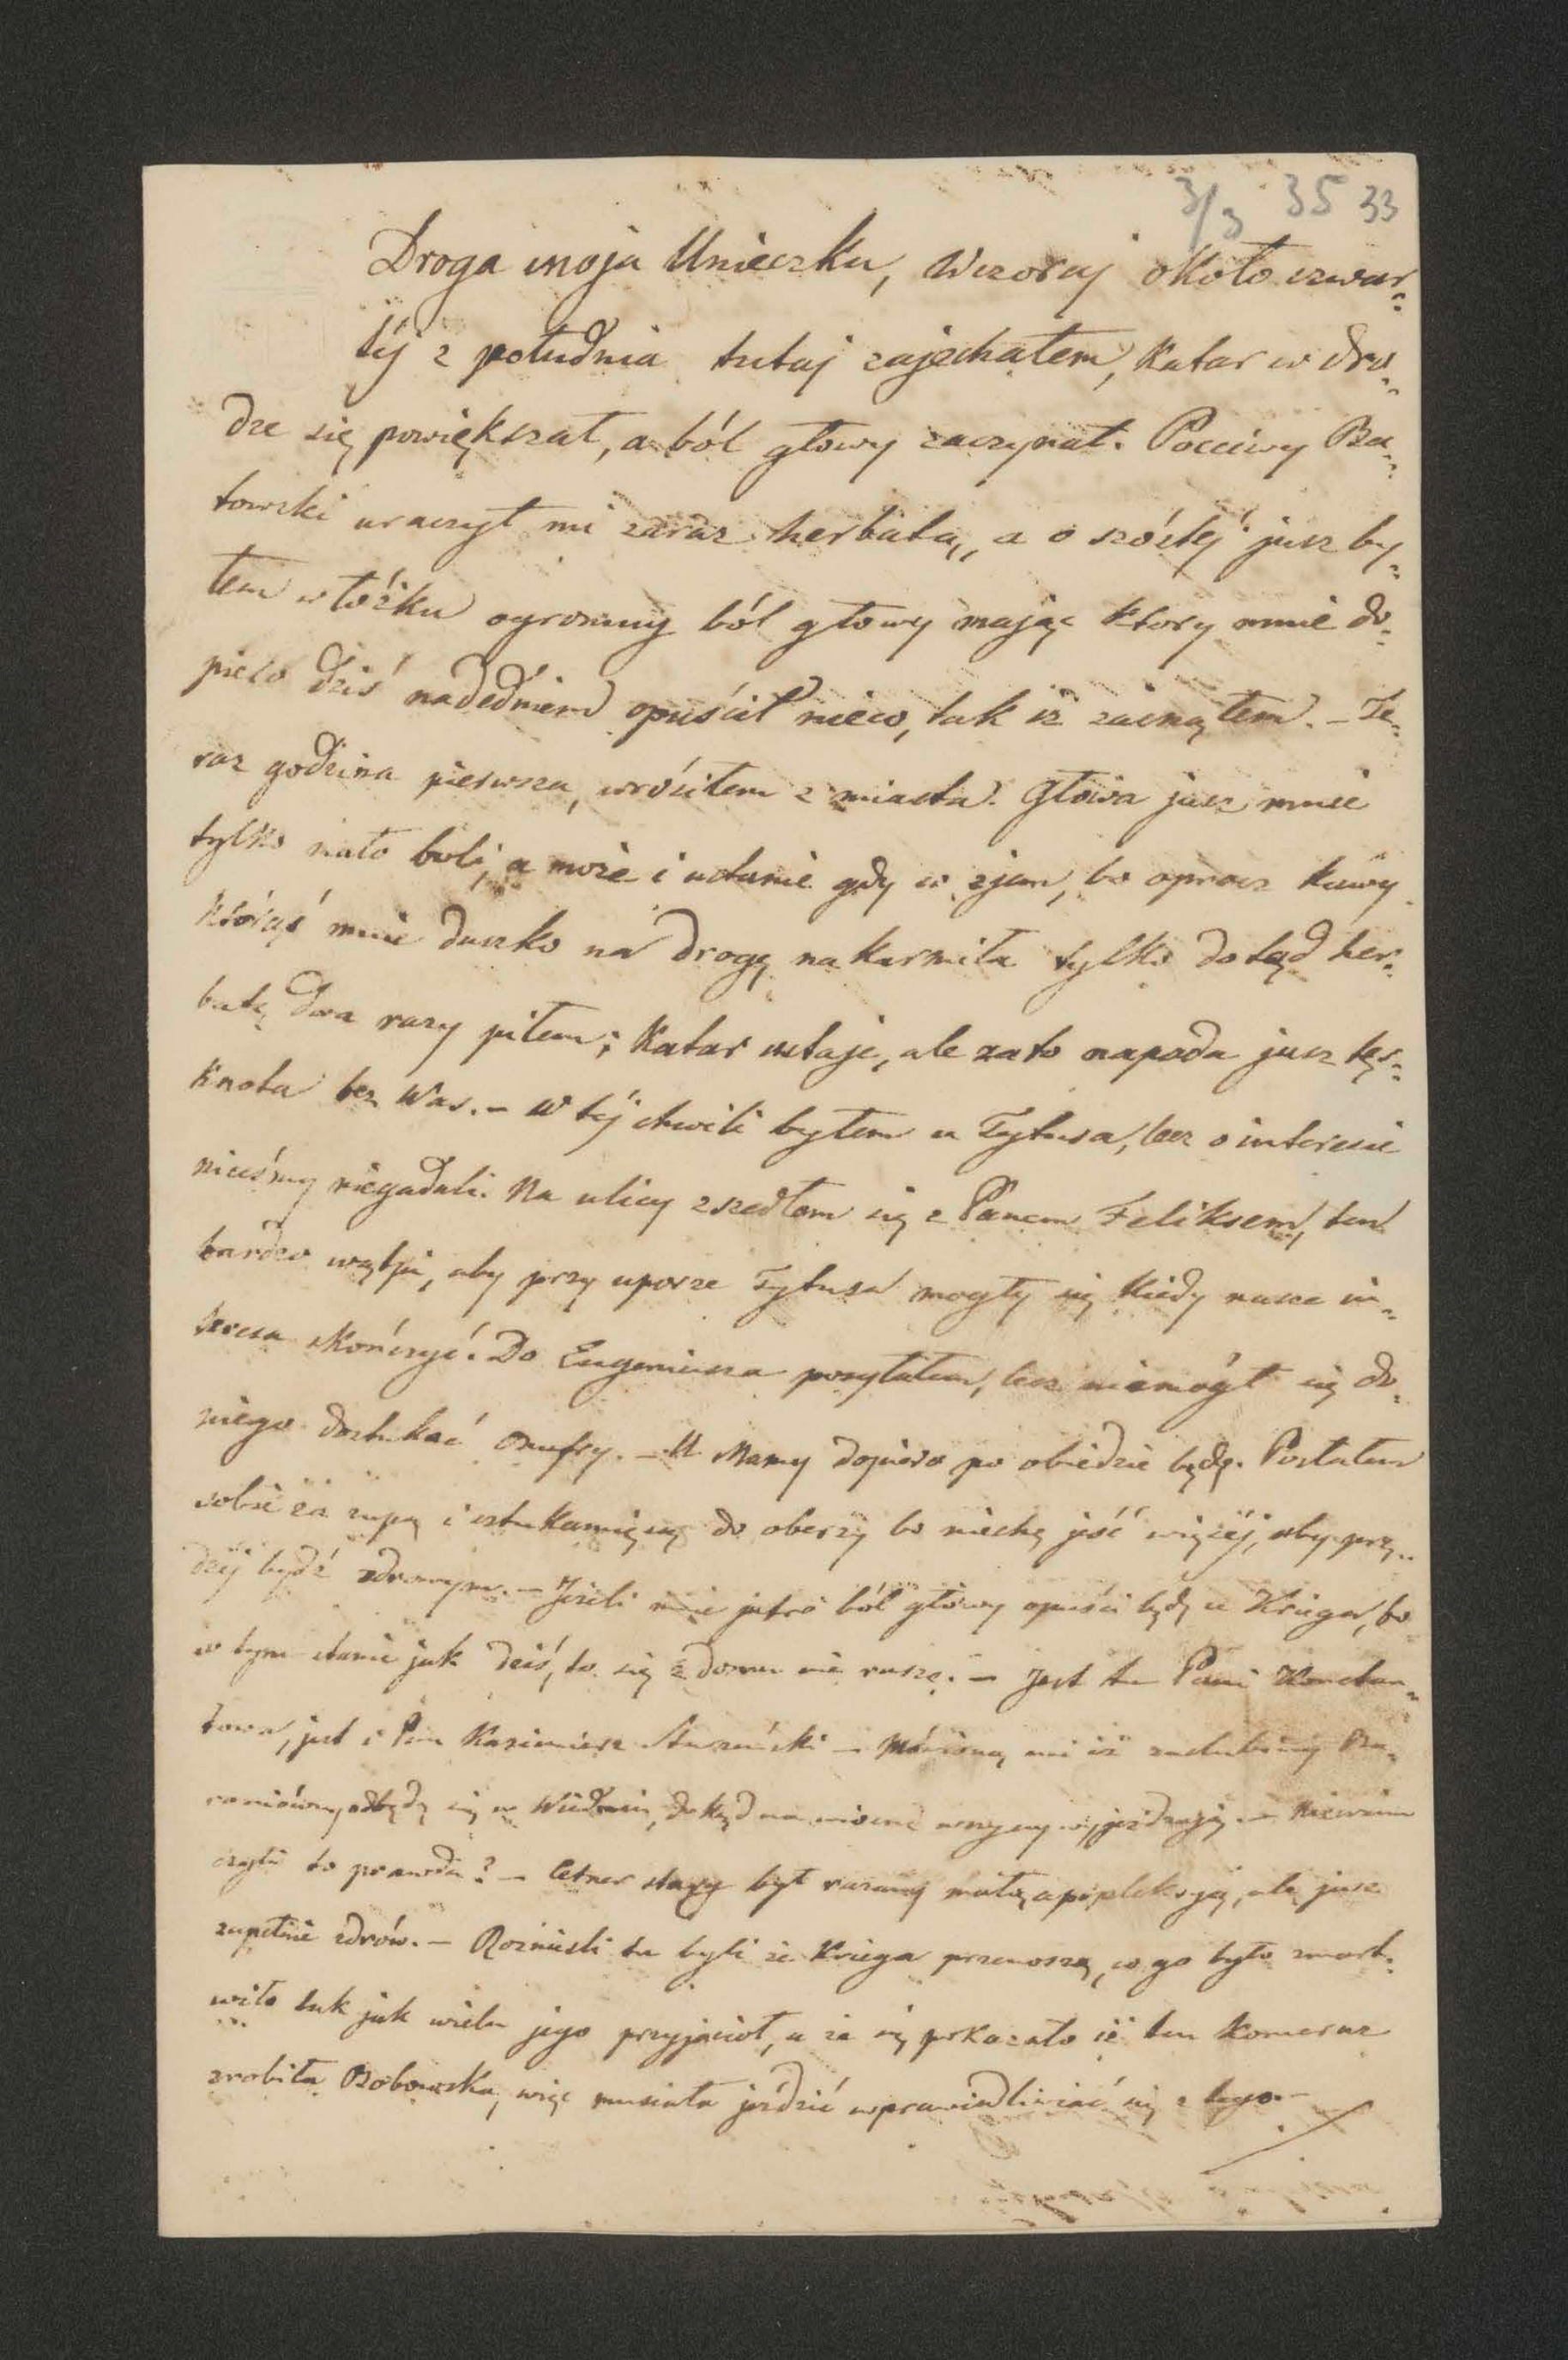 3/3 35 33
Droga moja Unieczku, Wczoraj około czwar=
téj z południa tutaj zajechałem, Katar w dro=
dze się powiększał, a ból głowy zaczynał. Poczciwy Ba=
towski uraczył mi zaraz herbatą, a o szóstéj jusz by=
łem w łóżku ogromny ból głowy mając który mnie do=
piero dziś nadedniem opuścił nieco, tak iż zasnąłem. – Te=
raz godzina pierwsza, wróciłem z miasta. Głowa jusz mnie
tylko mało boli, a może i ustanie gdy co zjem, bo oprócz kawy
którąś mnie duszko na drogę nakarmiła tylko dotąd her=
batę dwa razy piłem; Katar ustaje, ale zato napada jusz tęs=
knota bez Was. – W téj chwili byłem u Tytusa, lecz o interesie
nieśmy niegadali. Na ulicy zszedłem się z Panem Feliksem, ten
bardzo wątpi, aby przy uporze Tytusa mogły się kiedy nasze in=
teresa skończyć. Do Eugeniusza posyłałem, lecz niemógł się do
niego dostukać Onufry. – U Mamy dopiero po obiedzie będę. Posłałem
sobie za zupą i sztukamięsą do oberży bo niechę jeść więcéj, aby prę=
dzéj bydź zdrowym. – Jeżeli mnie jutro ból głowy opuści będę u Kriega, bo
w tym stanie jak dziś, to się z domu nie ruszę. – Jest tu Pani Konstan=
towa, jest i Pan Kazimierz – Mówiono mi iż zaślubiny Ba=
roniówny odbędą się w Wiedniu, dokąd na wiosnę wszyscy wyjeżdżają. – Niewiem
czyli to prawda? – Cetner stary był ruszony małą apopleksją, ale jusz
zupełnie zdrów. – Roznieśli tu byli że Kriega przenoszą, co go było zmart=
wiło tak jak wielu jego przyjaciół, a że się pokazało iż ten komeraz
zrobiła Bobowska, więc musiała jeździć usprawiedliwiać się z tego –